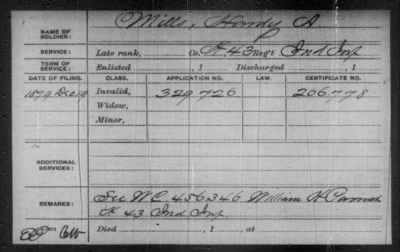 NAME OF SOLDIER: Mills, Hardy A
SERVICE: Late rank, Co. K 43 Reg't Ind Inf
TERM OF SERVICE: Enlisted , 1 Discharged , 1
DATE OF FILING. CLASS. APPLICATION NO. CERTIFICATE NO.
1879 Dec 19 Invalid, 329,726 206,778
Widow,
Minor,
ADDITIONAL SERVICES:
REMARKS: See W C 456346 William H
K 43 Ind Inf
Died , 1 , at